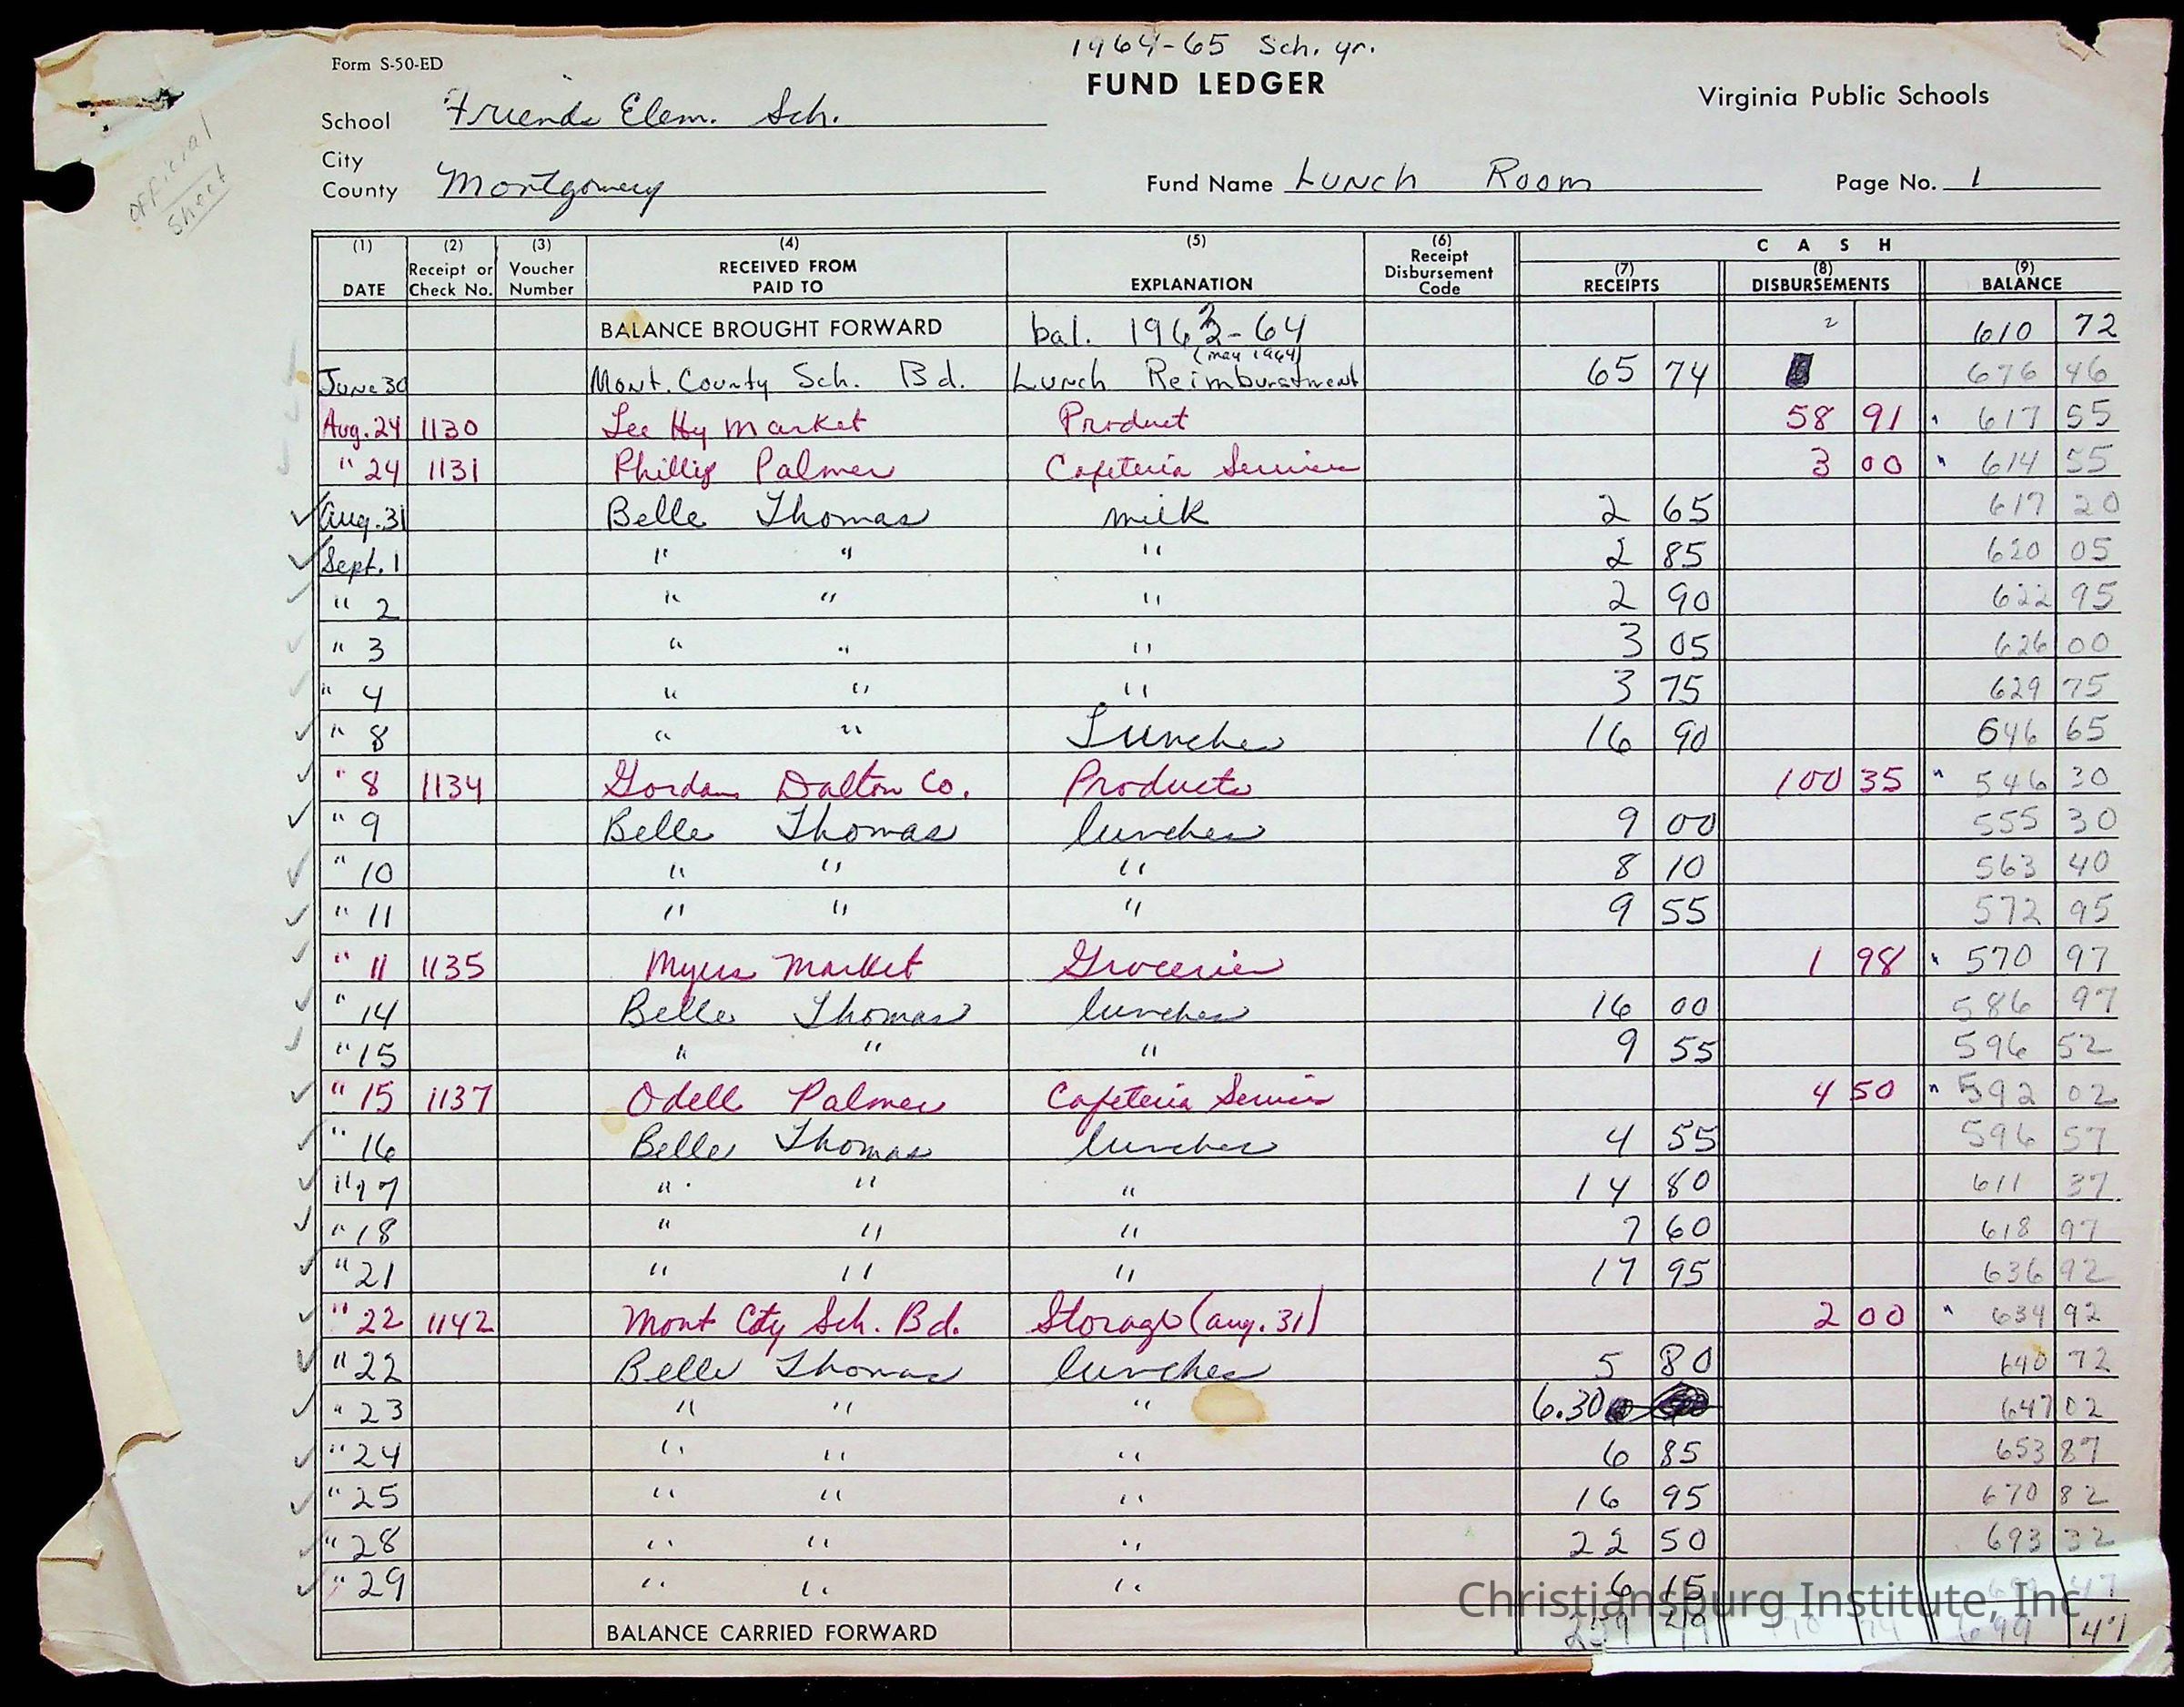 1964-65 Sch. yr.
Form S-50-ED
FUND LEDGER
Virginia Public Schools
School Friends Elem. Sch.
official sheet
City
County Montgomery
Fund Name Lunch Room
Page No. 1
(1) DATE (2) Receipt or Check No. (3) Voucher Number (4) RECEIVED FROM PAID TO (5) EXPLANATION (6) Receipt Disbursement Code CASH (7) RECEIPTS (8) DISBURSEMENTS (9) BALANCE
BALANCE BROUGHT FORWARD bal. 1963-64 610 72
(may 1964)
June 30 Mont. County Sch. Bd. Lunch Reimburstment 65 74 676 46
Aug. 24 1130 Lee Hy Market Product 58 91 617 55
" 24 1131 Phillip Palmer Cafeteria Service 3 00 614 55
Aug. 31 Belle Thomas milk 2 65 617 20
Sept. 1 " " " 2 85 620 05
" 2 " " " 2 90 622 95
" 3 " " " 3 05 626 00
" 4 " " " 3 75 629 75
" 8 " " Lunches 16 90 646 65
" 8 1134 Gordan Dalton Co. Products 100 35 546 30
" 9 Belle Thomas lunches 9 00 555 30
" 10 " " " 8 10 563 40
" 11 " " " 9 55 572 95
" 11 1135 Myers Market Groceries 1 98 570 97
" 14 Belle Thomas lunches 16 00 586 97
" 15 " " " 9 55 596 52
" 15 1137 Odell Palmer Cafeteria Service 4 50 592 02
" 16 Belle Thomas lunches 4 55 596 57
" 17 " " " 14 80 611 37
" 18 " " " 7 60 618 97
" 21 " " " 17 95 636 92
" 22 1142 Mont Cty Sch. Bd. Storage (aug. 31) 2 00 634 92
" 22 Belle Thomas lunches 5 80 640 72
" 23 " " " 6.30 647 02
" 24 " " " 6 85 653 87
" 25 " " " 16 95 670 82
" 28 " " " 22 50 693 32
" 29 " " " 6 15 699 47
Christiansburg Institute, Inc
BALANCE CARRIED FORWARD 259 49 170 74 699 47